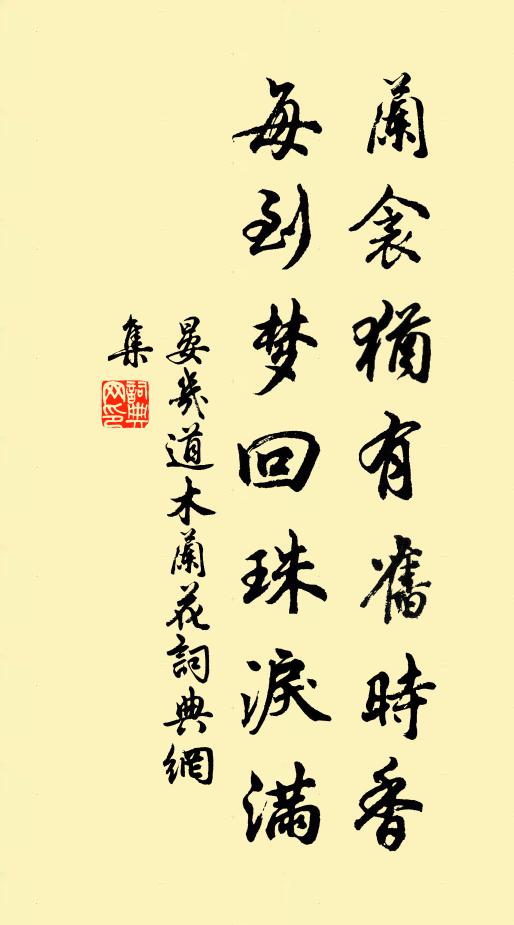 蘭衾猶有舊時香
每到梦回珠淚滿
晏幾道木蘭花詞典網
集
詞典
网印